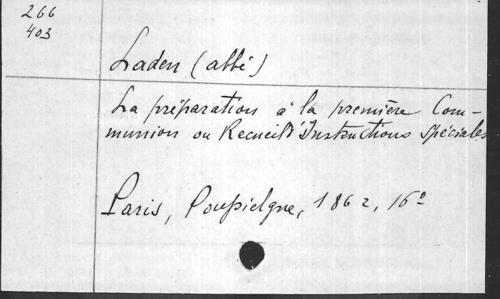 266
403
Laden (abbé)
La préparation à la première Com-
munion ou Recueil d'Instructions spéciales
Paris, Poussielgue, 1862, 16º